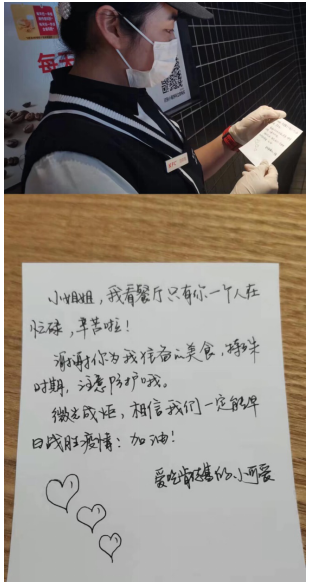 每天
小姐姐，我看餐厅只有你一个人在
忙碌，辛苦啦！
谢谢你为我准备的美食，特殊
时期，注意防护哦。
微光成炬，相信我们一定能早
日战胜疫情：加油！
爱吃肯德基的小可爱